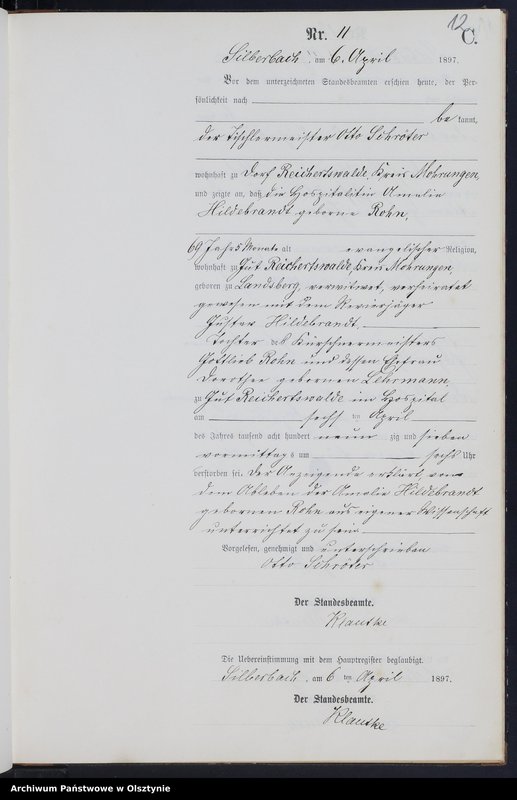 12
Nr. 11
C.
Silberbach, am 6. April 1897.
Vor dem unterzeichneten Standesbeamten erschien heute, der Per-
sönlichkeit nach
bekannt,
der Tischlermeister Otto Schröter
wohnhaft zu Dorf Reichertswalde, Kreis Mohrungen,
und zeigte an, daß die Hospitalitin Amalie
Hildebrandt geborne Rohn,
69 Jahr 5 Monate alt evangelischer Religion,
wohnhaft zu Gut Reichertswalde, Kreis Mohrungen,
geboren zu Landsberg, verwitwet, verheiratet
gewesen mit dem Revierjäger
Gustav Hildebrandt,
Tochter des Kürschnermeisters
Gottlieb Rohn und dessen Ehefrau
Dorothea gebornen Lehrmann,
zu Gut Reichertswalde im Hospital
am sechs ten April
des Jahres tausend acht hundert neun zig und sieben
vormittags um sechs Uhr
verstorben sei. Der Anzeigende erklärt, von
dem Ableben der Amalie Hildebrandt
gebornen Rohn aus eigener Wissenschaft
unterrichtet zu sein.
Vorgelesen, genehmigt und unterschrieben
Otto Schröter
Der Standesbeamte.
Klautke
Die Uebereinstimmung mit dem Hauptregister beglaubigt.
Silberbach, am 6 ten April 1897.
Der Standesbeamte.
Klautke
Archiwum Państwowe w Olsztynie